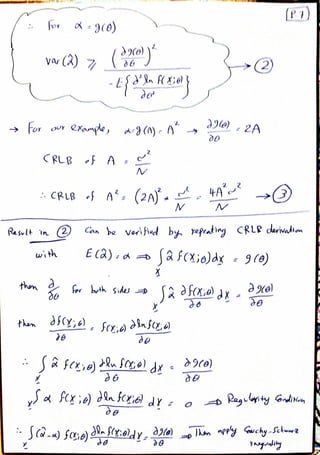 P7
∴ For α = g(θ)
var(α̂) ≥ (∂g(θ)/∂θ)² / -E{∂² ln f(x;θ)/∂θ²} → ②
→ For our example, α = g(A) = A² → ∂g(θ)/∂θ = 2A
CRLB of A = σ²/N
∴ CRLB of A² = (2A)² * σ²/N = 4A²σ²/N → ③
Result in ② can be verified by repeating CRLB derivation
with E(α̂) = α ⇒ ∫ α̂ f(x;θ) dx = g(θ)
then ∂/∂θ for both sides ⇒ ∫ α̂ ∂f(x;θ)/∂θ dx = ∂g(θ)/∂θ
then ∂f(x;θ)/∂θ = f(x;θ) ∂ln f(x;θ)/∂θ
∴ ∫ α̂ f(x;θ) ∂ln f(x;θ)/∂θ dx = ∂g(θ)/∂θ
∫ α f(x;θ) ∂ln f(x;θ)/∂θ dx = 0 ⇒ Regularity Condition
∴ ∫ (α̂-α) f(x;θ) ∂ln f(x;θ)/∂θ dx = ∂g(θ)/∂θ ⇒ Then apply Cauchy-Schwarz
Inequality